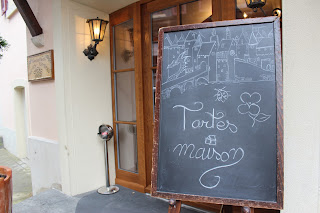 Tartes
maison